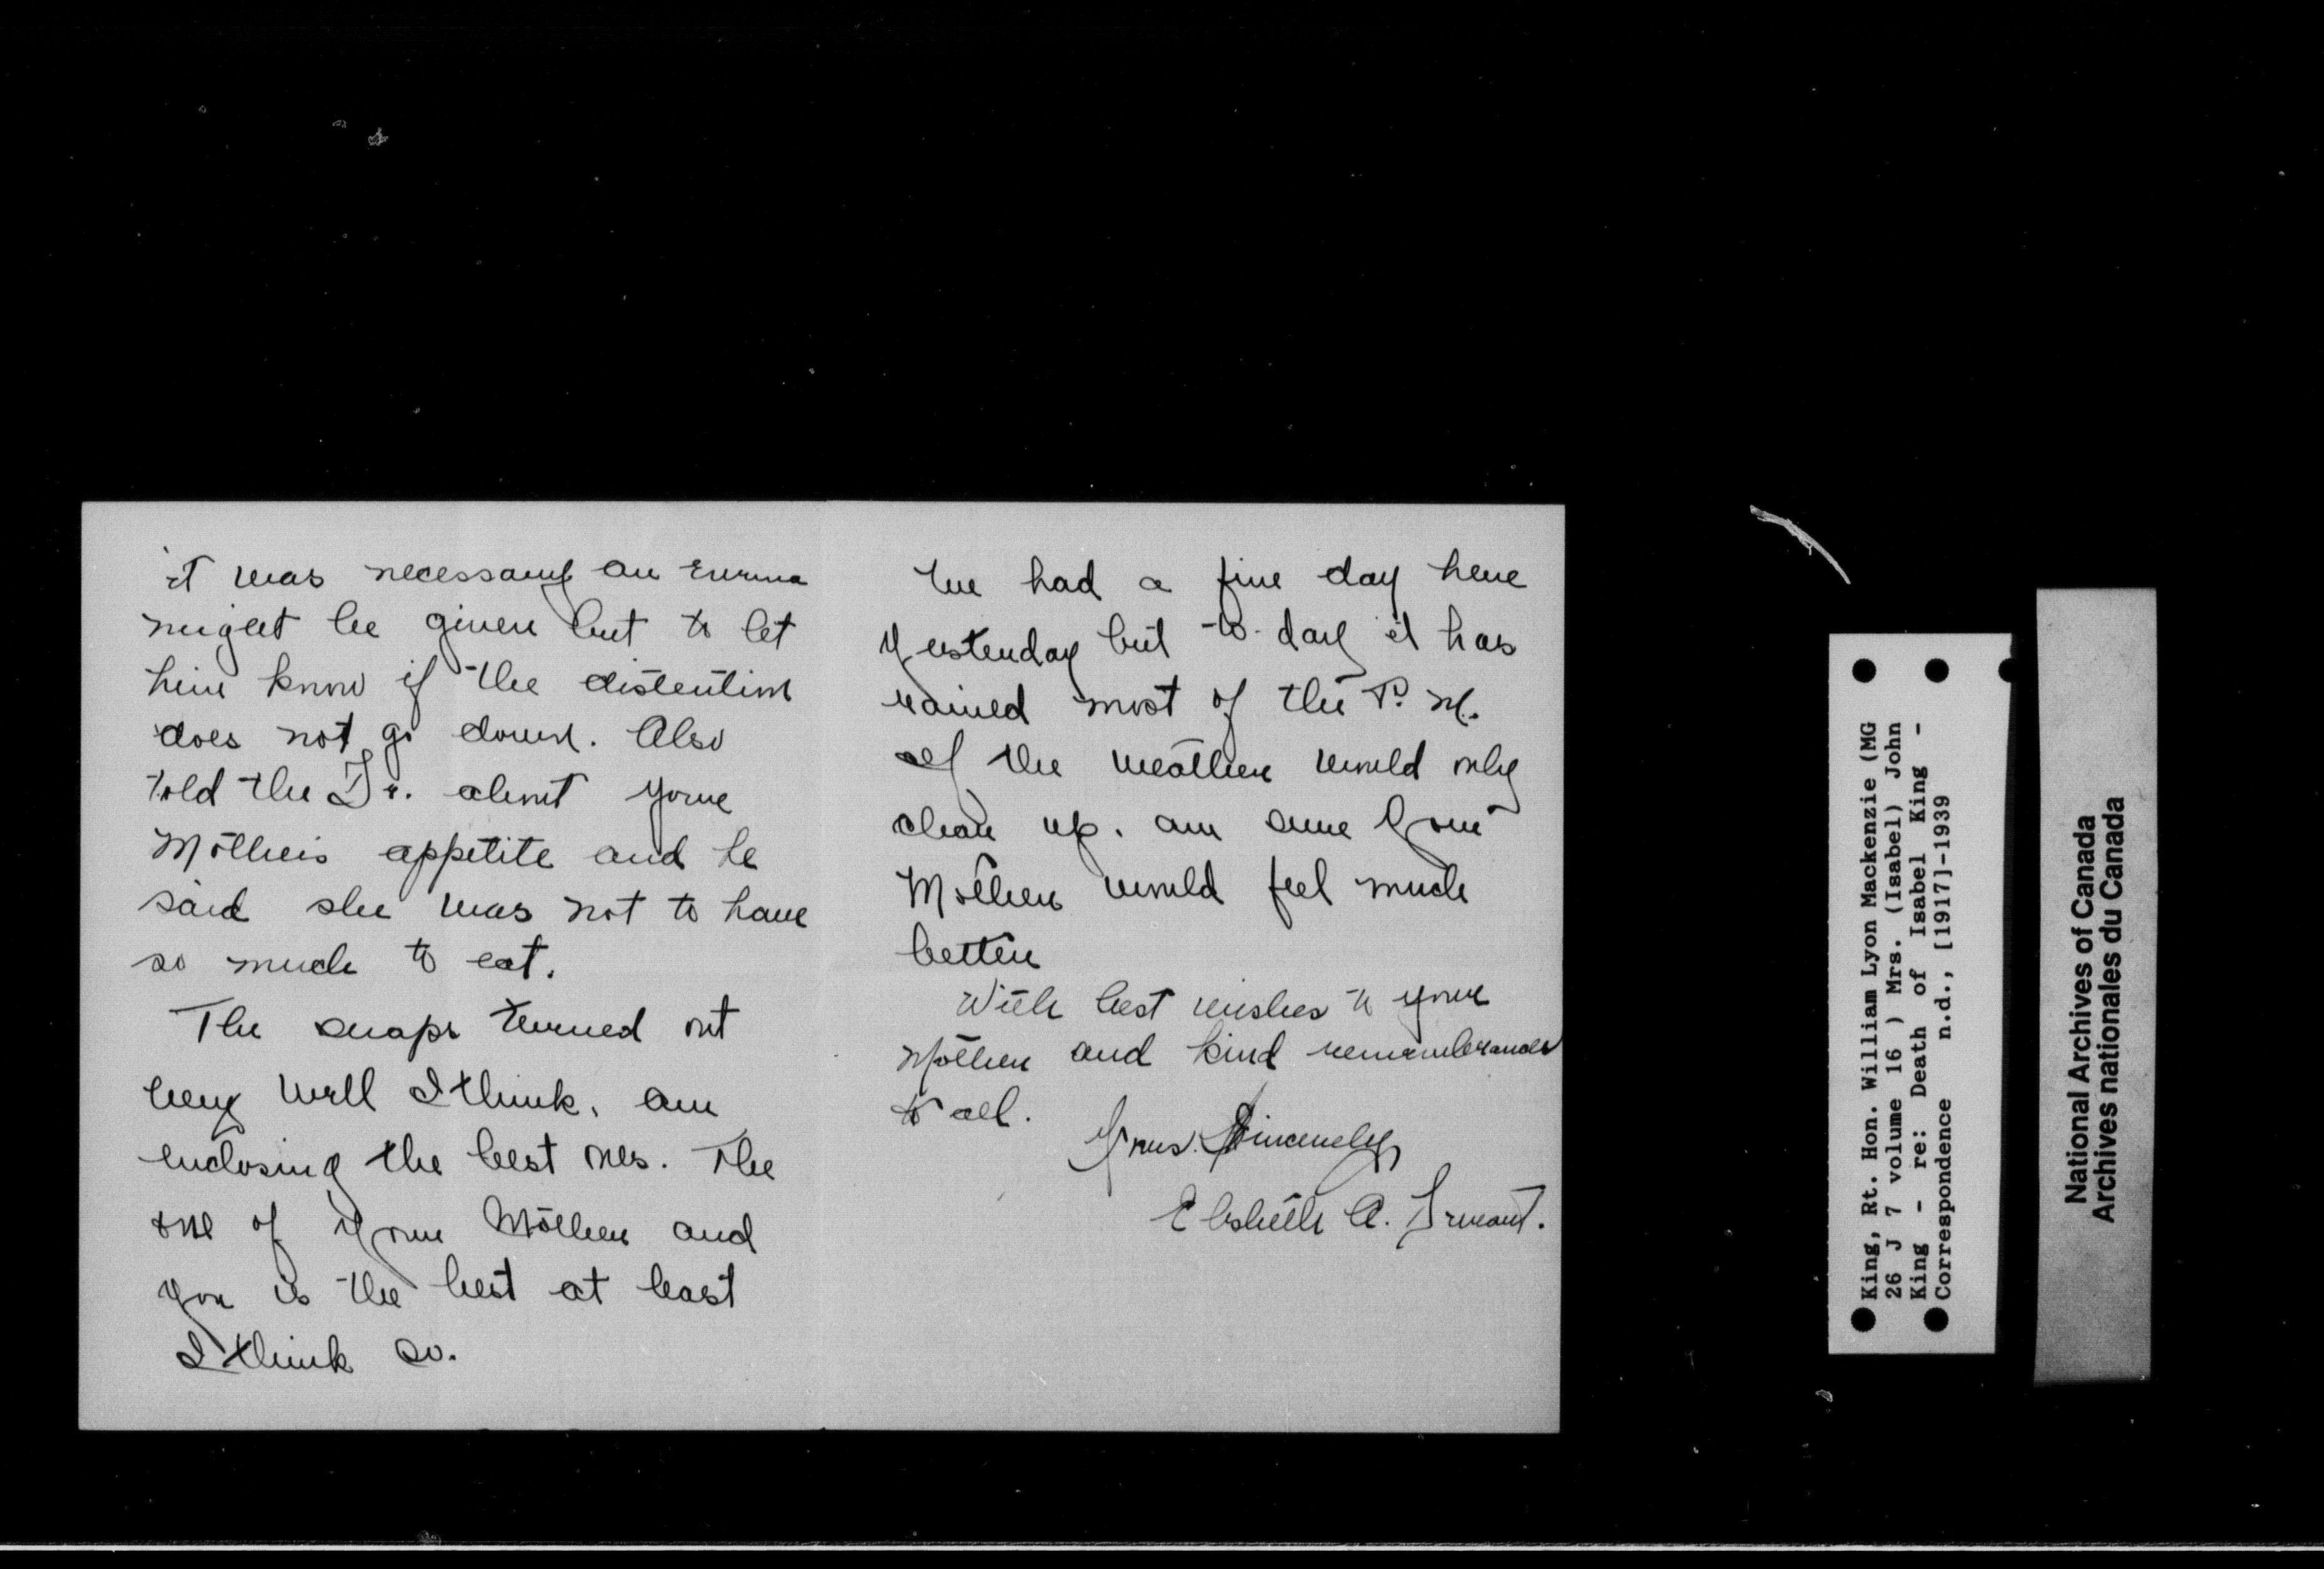 it was necessary an enema
might be given but to let
him know if the distention
does not go down. Also
told the Dr. about your
Mother's appetite and he
said she was not to have
so much to eat.
The snaps turned out
very well I think, am
enclosing the best ones. The
one of your Mother and
you is the best at least
I think so.
We had a fine day here
yesterday but to-day it has
rained most of the P.M.
If the weather would only
clear up. am sure your
Mother would feel much
better
With best wishes to your
Mother and kind remembrances
to all.
Yours Sincerely,
A.
King, Rt. Hon. William Lyon Mackenzie (MG
26 J 7 volume 16 ) Mrs. (Isabel) John
King - re: Death of Isabel King -
Correspondence n.d., [1917]-1939
National Archives of Canada
Archives nationales du Canada